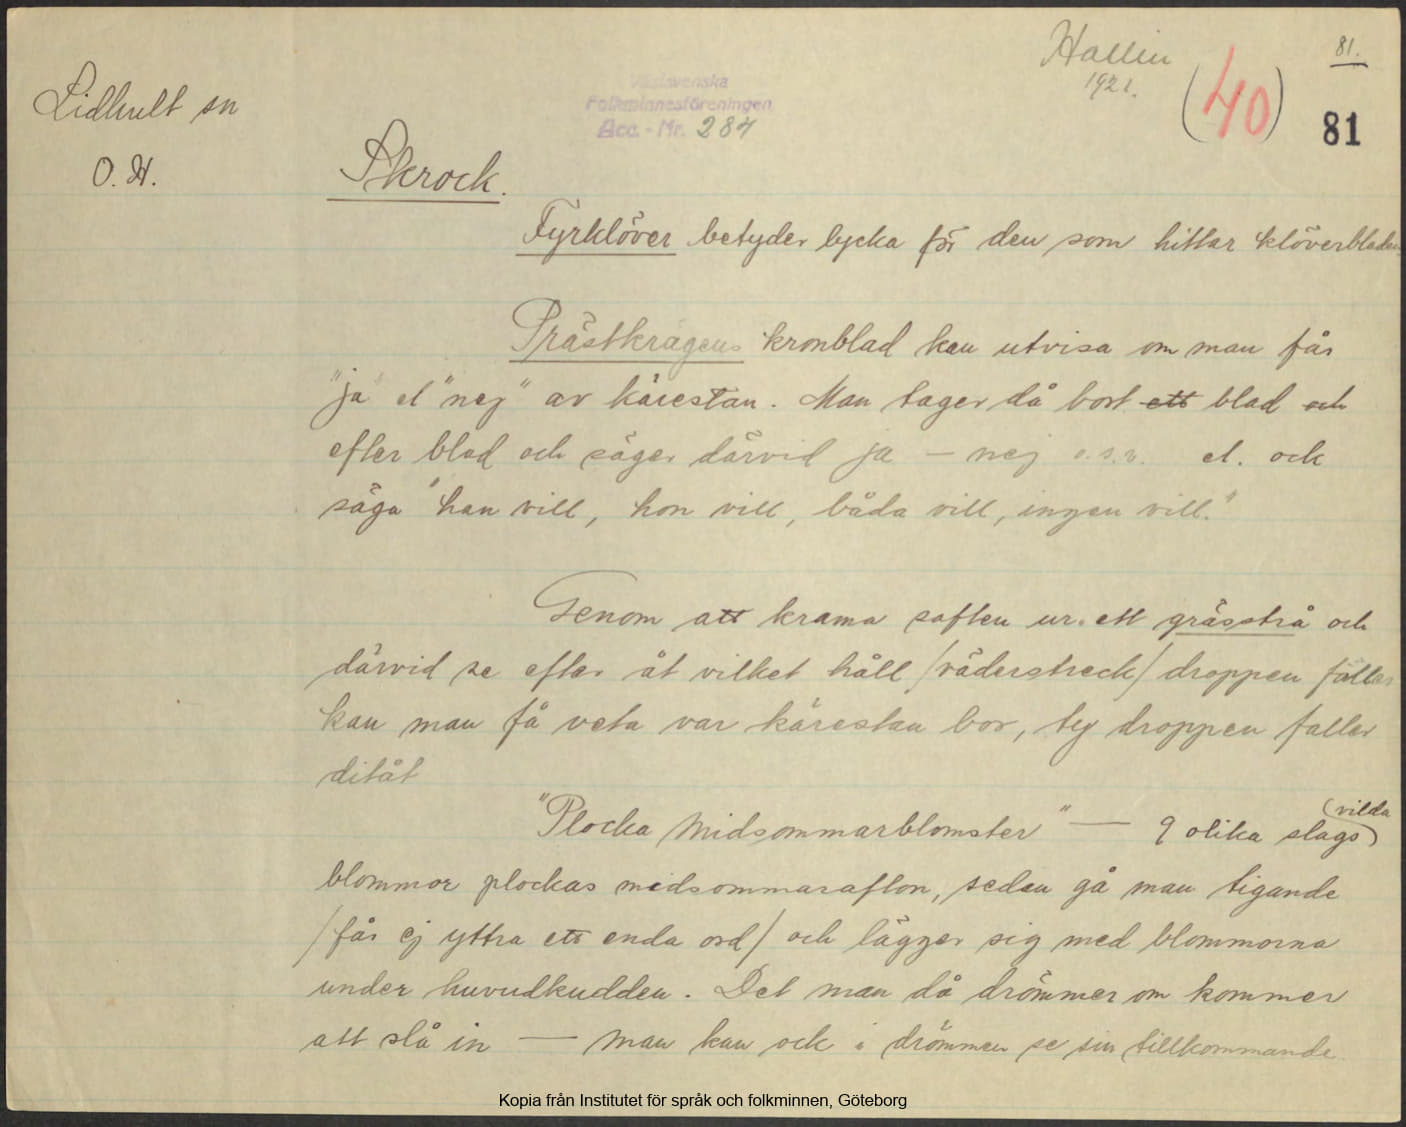 Hallin
1921.
81.
(40)
81
Lidhult sn
O. H.
Västsvenska
Folkminnesföreningen
Acc.-Nr. 284
Skrock.
Fyrklöver betyder lycka för den som hittar klöverbladen.
Prästkragens kronblad kan utvisa om man får
"ja" el "nej" av kärestan. Man tager då bort ett blad och
efter blad och säger därvid ja — nej o.s.v. el. ock
säga "han vill, hon vill, båda vill, ingen vill."
Genom att krama saften ur ett grässtrå och
därvid se efter åt vilket håll /väderstreck/ droppen faller
kan man få veta var kärestan bor, ty droppen faller
ditåt
"Plocka Midsommarblomster" — 9 olika slags (vilda)
blommor plockas midsommarafton, sedan gå man tigande
/får ej yttra ett enda ord/ och lägger sig med blommorna
under huvudkudden. Det man då drömmer om kommer
att slå in — man kan ock i drömmen se sin tillkommande.
Kopia från Institutet för språk och folkminnen, Göteborg